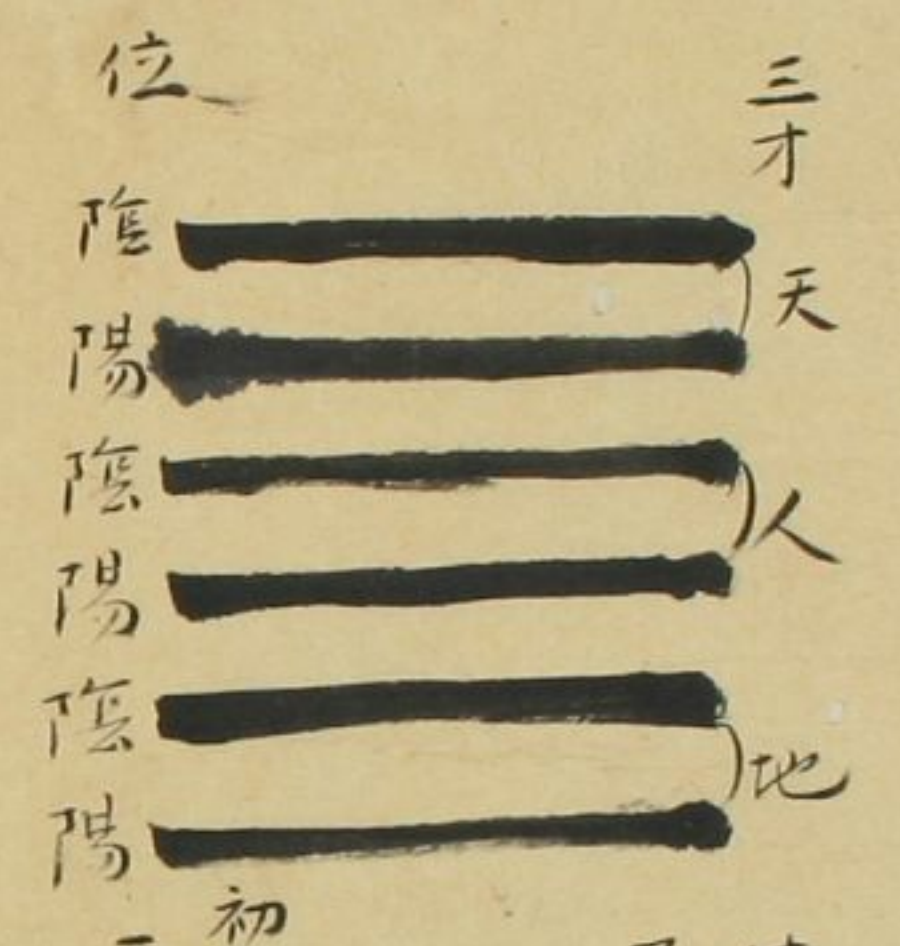 三才
天
人
地
位
陰
陽
陰
陽
陰
陽
初